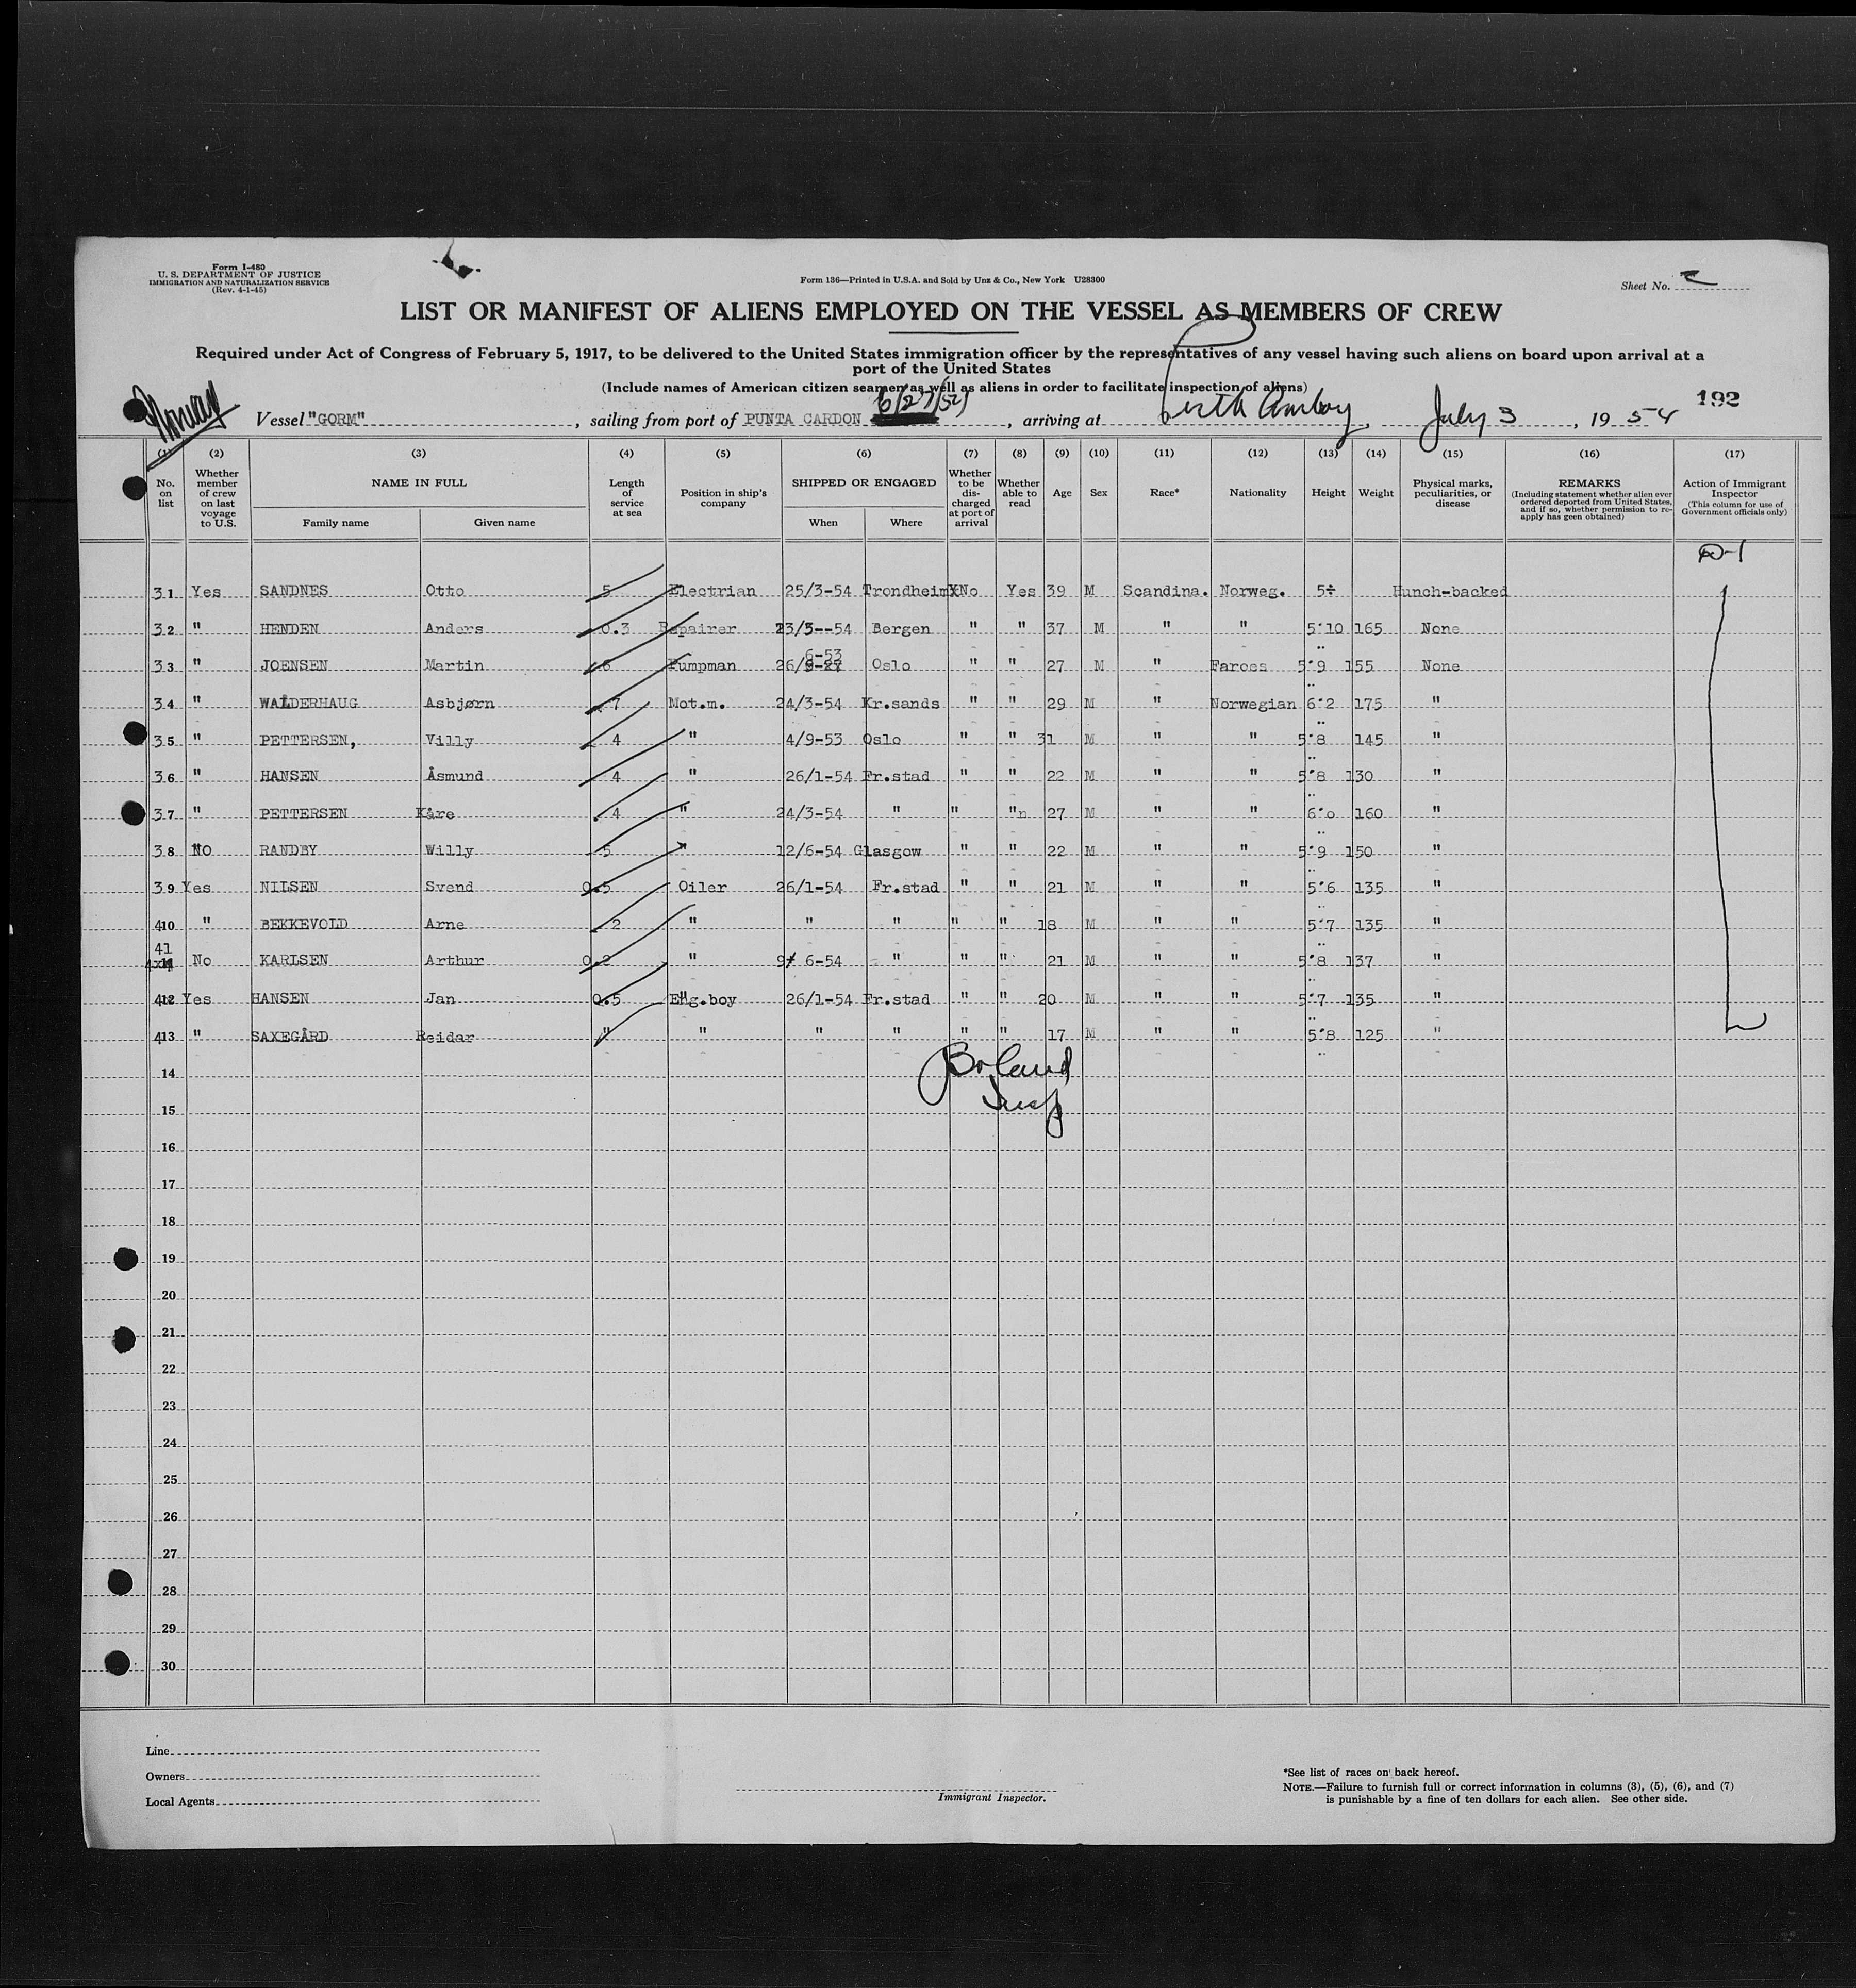 Form I-480
U. S. DEPARTMENT OF JUSTICE
IMMIGRATION AND NATURALIZATION SERVICE
(Rev. 4-1-45)
Form 136—Printed in U.S.A. and Sold by Unz & Co., New York U28300
Sheet No.
LIST OR MANIFEST OF ALIENS EMPLOYED ON THE VESSEL AS MEMBERS OF CREW
Required under Act of Congress of February 5, 1917, to be delivered to the United States immigration officer by the representatives of any vessel having such aliens on board upon arrival at a
port of the United States
(Include names of American citizen seamen as well as aliens in order to facilitate inspection of aliens)
192
Norway
6/27/54
Vessel "GORM", sailing from port of PUNTA CARDON, arriving at Perth Amboy, July 3, 1954
(1) (2) (3) (4) (5) (6) (7) (8) (9) (10) (11) (12) (13) (14) (15) (16) (17)
No. on list
Whether member of crew on last voyage to U.S.
NAME IN FULL
Family name Given name
Length of service at sea
Position in ship's company
SHIPPED OR ENGAGED
When Where
Whether to be discharged at port of arrival
Whether able to read
Age
Sex
Race*
Nationality
Height
Weight
Physical marks, peculiarities, or disease
REMARKS
(Including statement whether alien ever ordered deported from United States, and if so, whether permission to re-apply has geen obtained)
Action of Immigrant Inspector
(This column for use of Government officials only)
D-1
31 Yes SANDNES Otto 5 Electrian 25/3-54 Trondheim No Yes 39 M Scandina. Norweg. 5÷ Hunch-backed
32 " HENDEN Anders 0.3 Repairer 23/5--54 Bergen " " 37 M " " 5'10 165 None
33 " JOENSEN Martin 6 Pumpman 26/6-53 Oslo " " 27 M " Faroes 5'9 155 None
34 " WALDERHAUG Asbjørn 7 Mot.m. 24/3-54 Kr.sands " " 29 M " Norwegian 6'2 175 "
35 " PETTERSEN, Villy 4 " 4/9-53 Oslo " " 31 M " " 5'8 145 "
36 " HANSEN Åsmund 4 " 26/1-54 Fr.stad " " 22 M " " 5'8 130 "
37 " PETTERSEN Kåre 4 " 24/3-54 " " "n 27 M " " 6'o 160 "
38 No RANDBY Willy 5 " 12/6-54 Glasgow " " 22 M " " 5'9 150 "
39 Yes NILSEN Svend 0.5 Oiler 26/1-54 Fr.stad " " 21 M " " 5'6 135 "
410 " BEKKEVOLD Arne 2 " " " " " 18 M " " 5'7 135 "
41 No KARLSEN Arthur 0.2 " 9/6-54 " " " 21 M " " 5'8 137 "
412 Yes HANSEN Jan 0.5 Eng.boy 26/1-54 Fr.stad " " 20 M " " 5'7 135 "
413 " SAXEGÅRD Reidar " " " " " " 17 M " " 5'8 125 "
Boland
Insp
14
15
16
17
18
19
20
21
22
23
24
25
26
27
28
29
30
Line
Owners
Local Agents
Immigrant Inspector.
*See list of races on back hereof.
NOTE.—Failure to furnish full or correct information in columns (3), (5), (6), and (7)
is punishable by a fine of ten dollars for each alien. See other side.